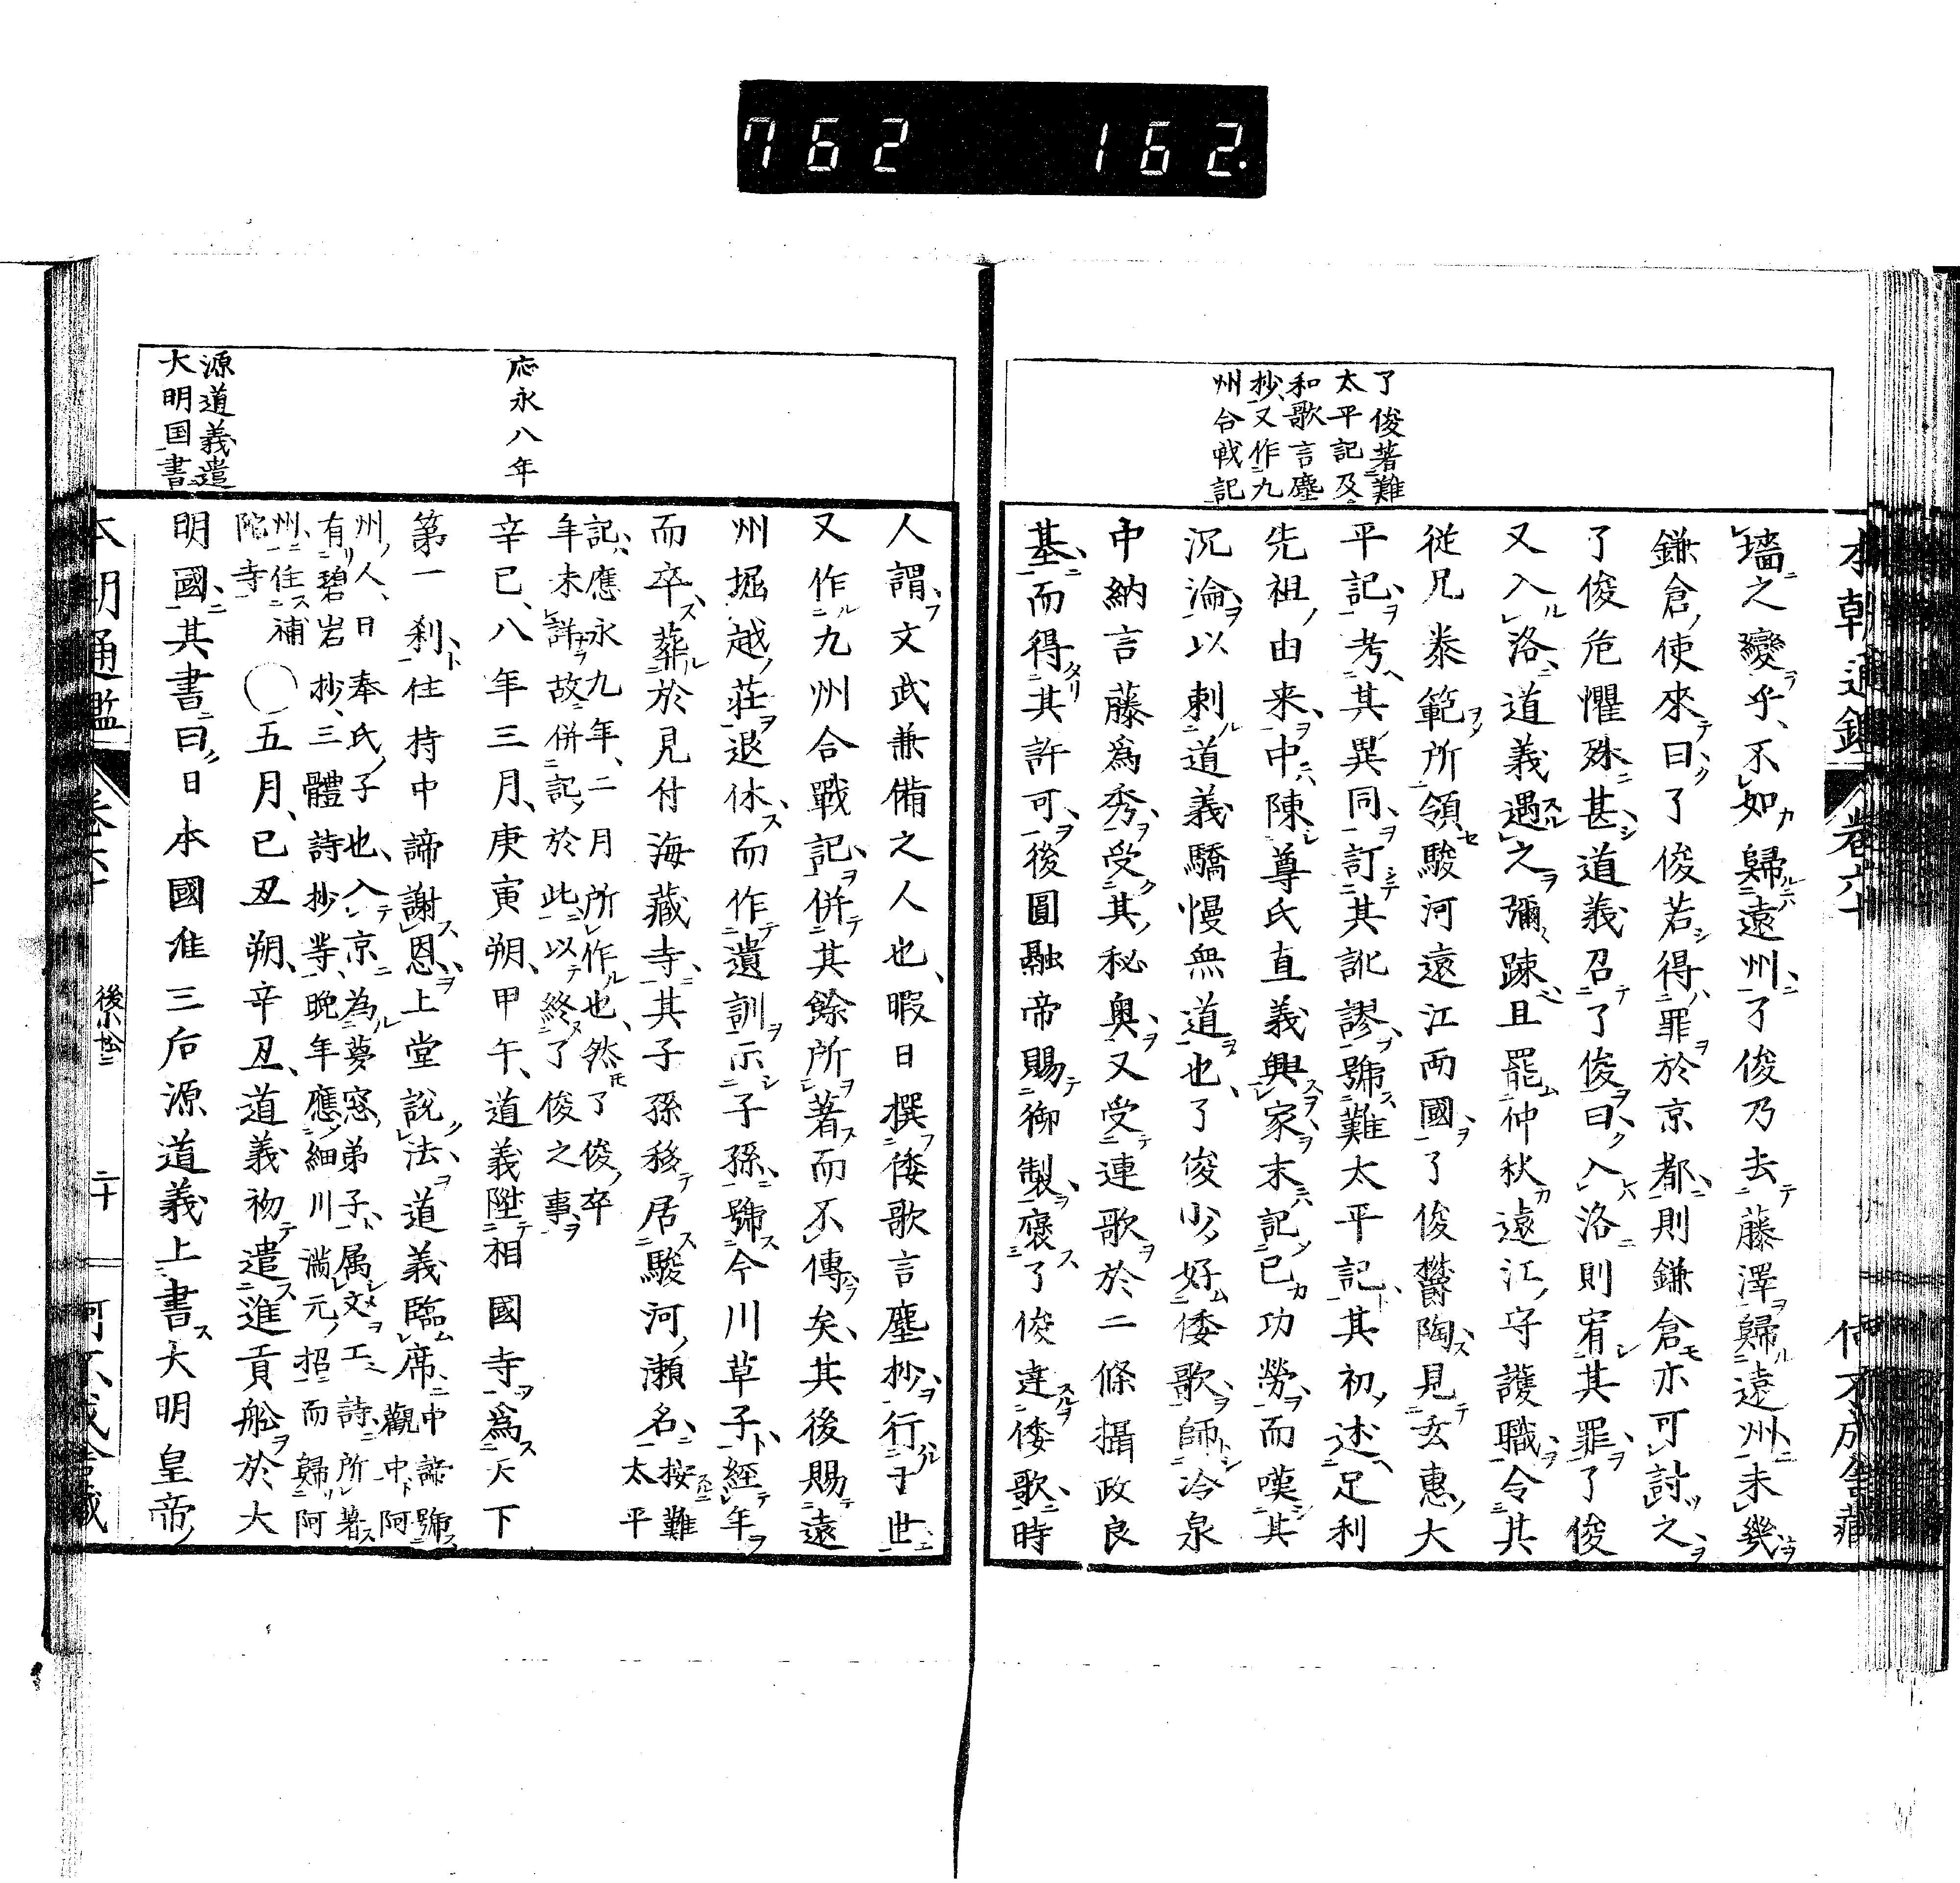 762 162.
本朝通鑑 卷六十
了俊著難
太平記及
和歌言塵
抄又作九
州合戦記
墻之變乎不如歸遠州了俊乃去藤澤歸遠州未幾
鎌倉使來曰了俊若得罪於京都則鎌倉亦可討之
了俊危懼殊甚道義召了俊曰入洛則宥其罪了俊
又入洛道義遇之彌踈且罷仲秋遠江守護職令其
從兄泰範所領駿河遠江兩國了俊欝陶見玄惠大
平記考其異同訂其訛謬號難太平記其初述足利
先祖由来中陳尊氏直義興家末記已功勞而嘆其
沉淪以刺道義驕慢無道也了俊少好倭歌師冷泉
中納言藤為秀受其秘奥又受連歌於二條攝政良
基而得其許可後圓融帝賜御製褒了俊達倭歌時
人謂文武兼備之人也暇日撰倭歌言塵抄行于世
又作九州合戰記併其餘所著而不傳矣其後賜遠
州堀越荘退休而作遺訓示子孫號今川草子經年
而卒葬於見付海藏寺其子孫移居駿河瀬名按難太平
記應永九年二月所作也然了俊卒
年未詳故併記於此以終了俊之事
應永八年
辛巳八年三月庚寅朔甲午道義陞相國寺為天下
第一刹住持中諦謝恩上堂說法道義臨席中諦號觀中阿
州人日奉氏子也入京為夢窓弟子属文工詩所著
有碧岩抄三體詩抄等晩年應細川満元招而歸阿
州住補
陀寺
〇五月己丑朔辛丑道義初遣進貢舩於大
源道義遣
大明国書
明國其書曰日本國准三后源道義上書大明皇帝
本朝通鑑 卷六十 後小松二 二十